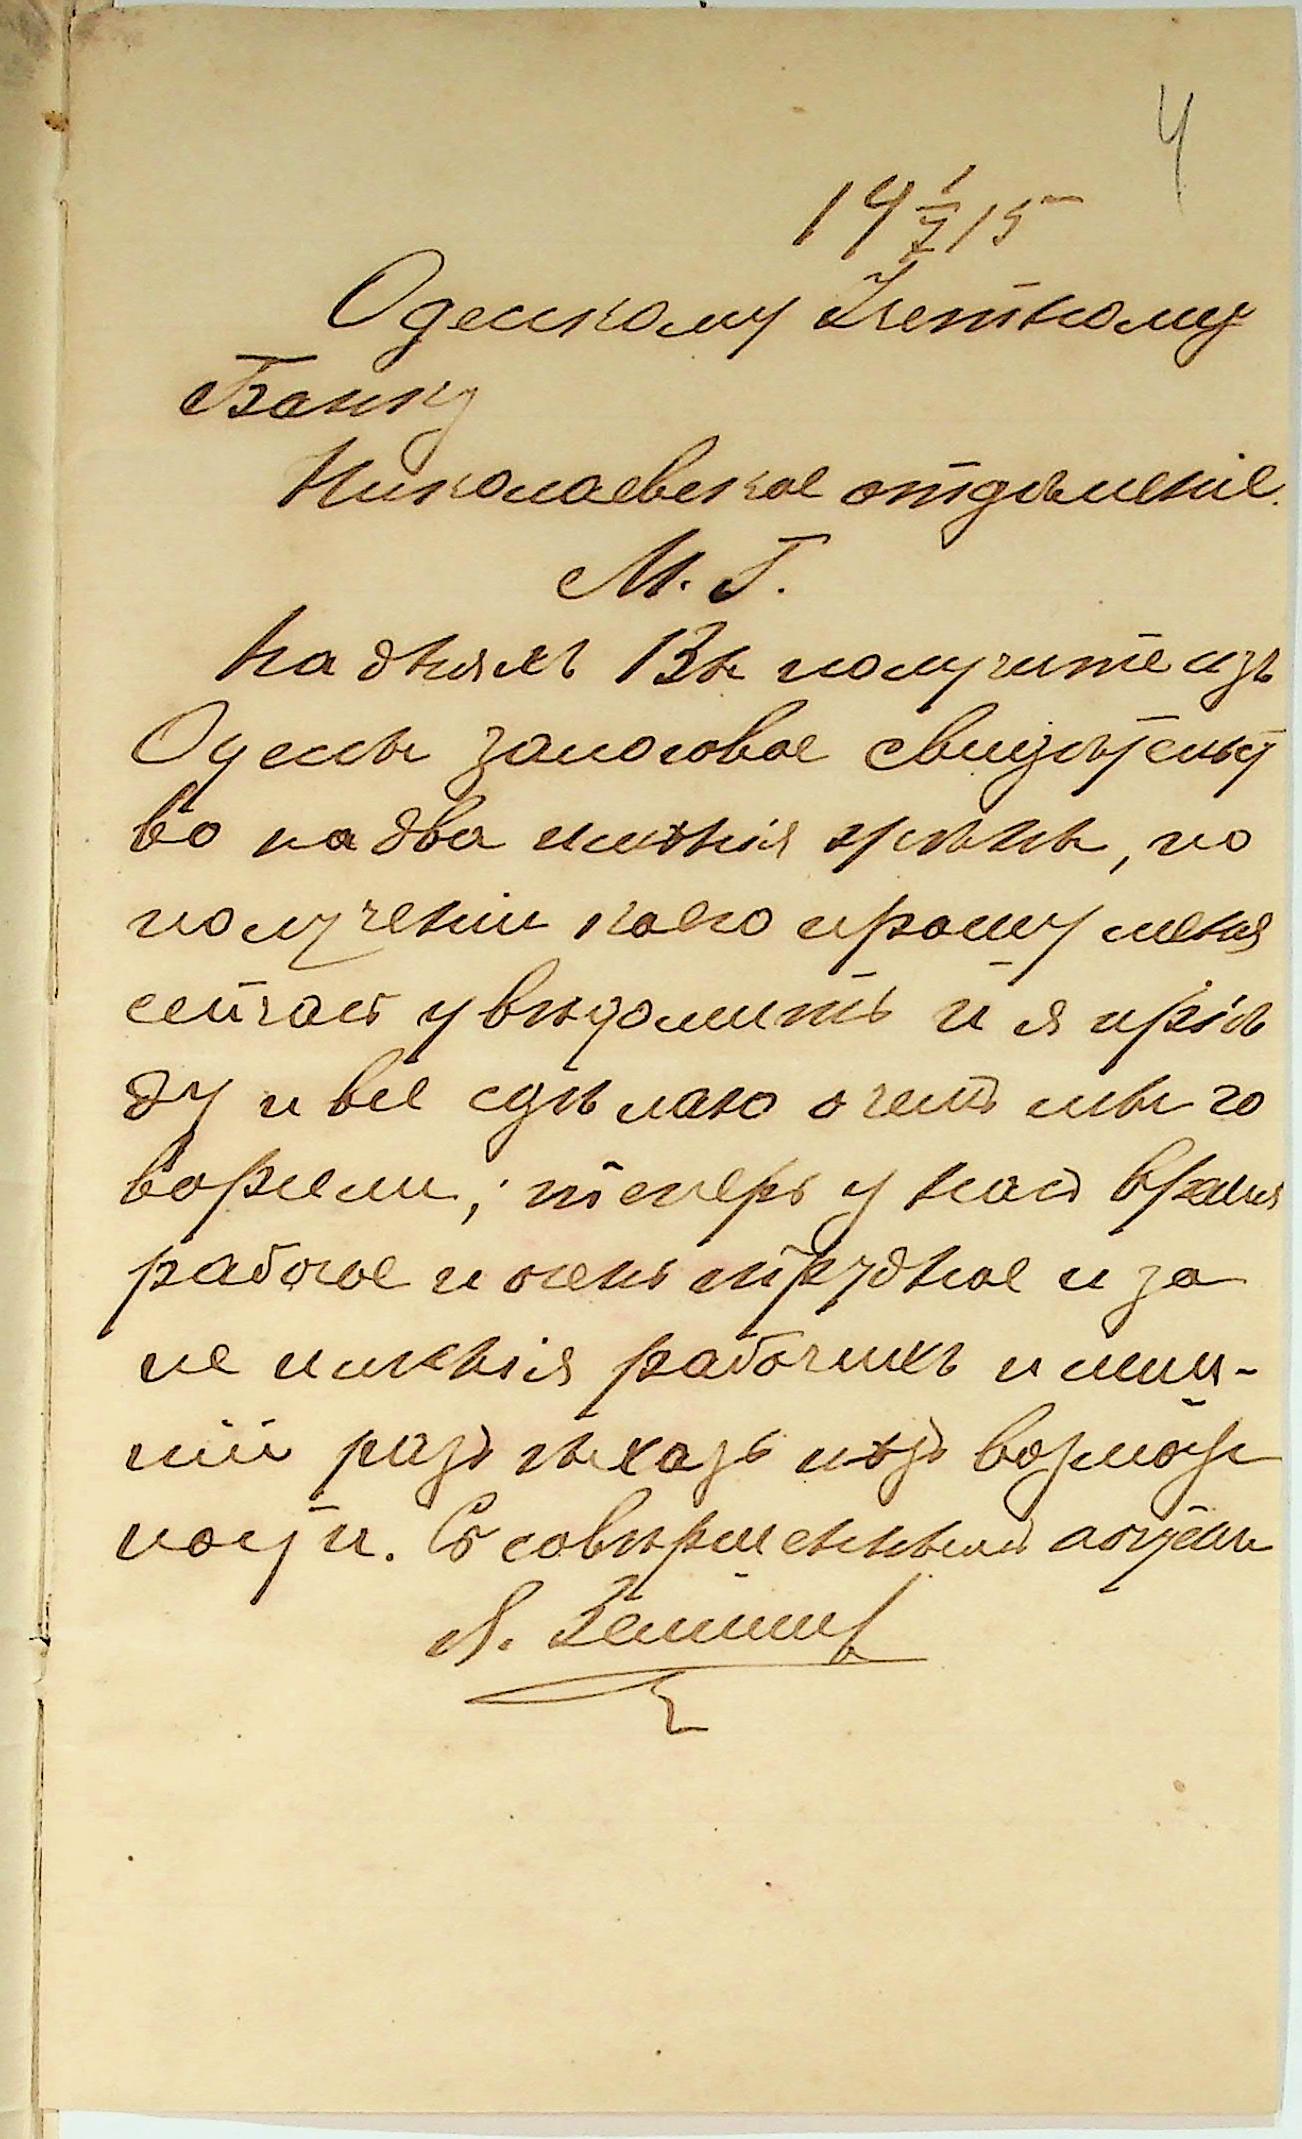 4
19 1/7 15
Одесскому Учетному
Банку
Николаевское отдѣленіе.
М. Г.
На дняхъ Вы получите изъ
Одессы залоговое свидѣтельст
во на два имѣнія, по
полученіи коего прошу меня
сейчасъ увѣдомить и я пріѣ
ду и все сдѣлаю о чемъ мы го
ворили; теперь у насъ время
рабочее и очень трудное и за
не имѣнія рабочихъ и лиш-
ній разъ нѣтъ возмож
ности. Съ совершеннымъ почтен